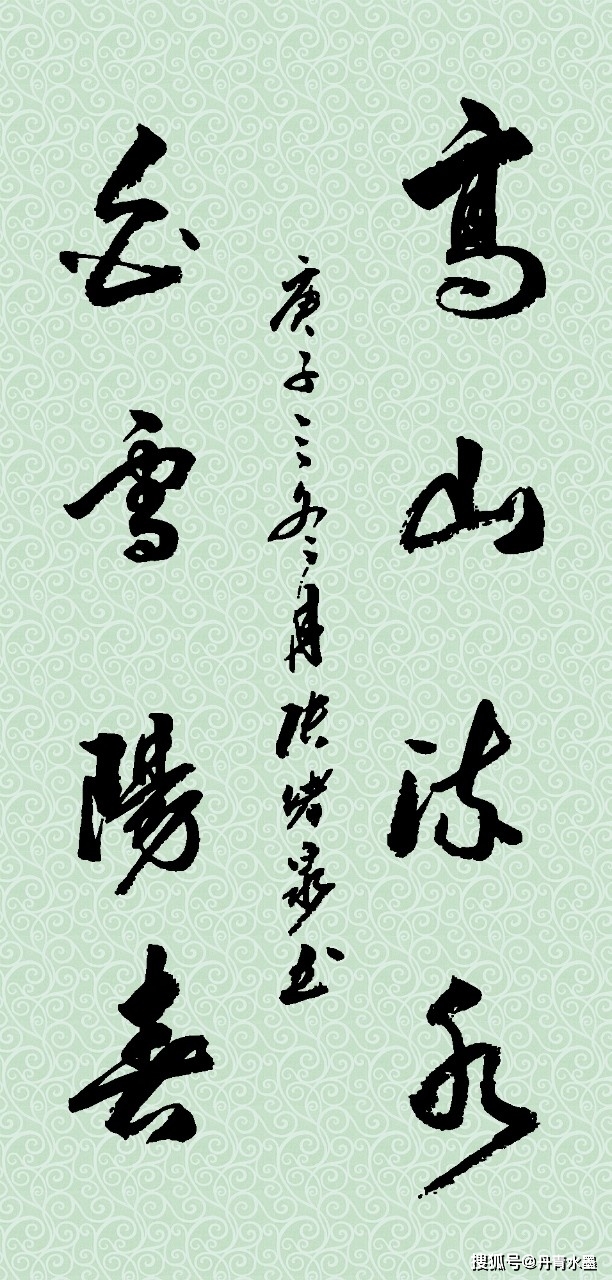 高山流水
庚子三冬月张绪书
白雪陽春
搜狐号@丹青水墨